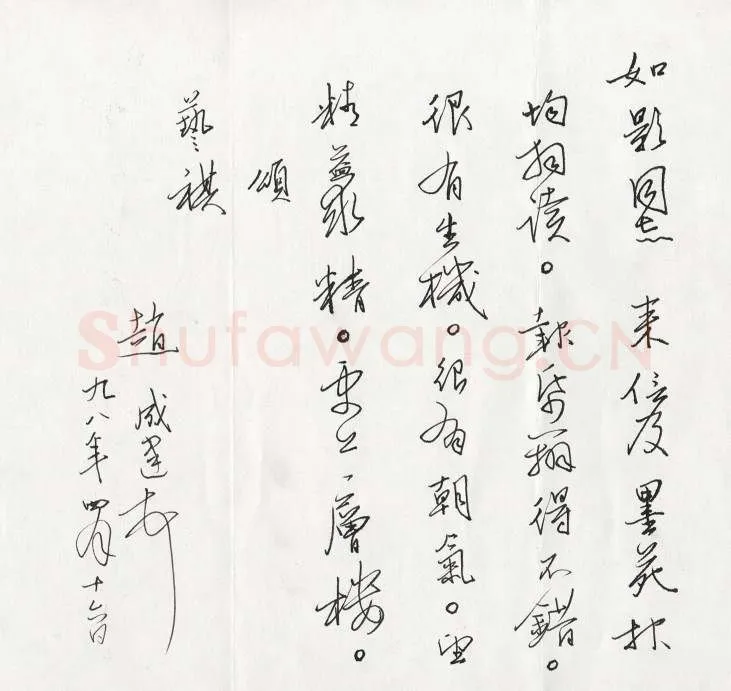 如影同志 来信及墨苑报
均拜读。報帋編得不錯。
很有生機。很有朝氣。望
精益求精。更上一層樓。
頌
藝祺
趙成
九八年四月十六日
Shufawang.CN